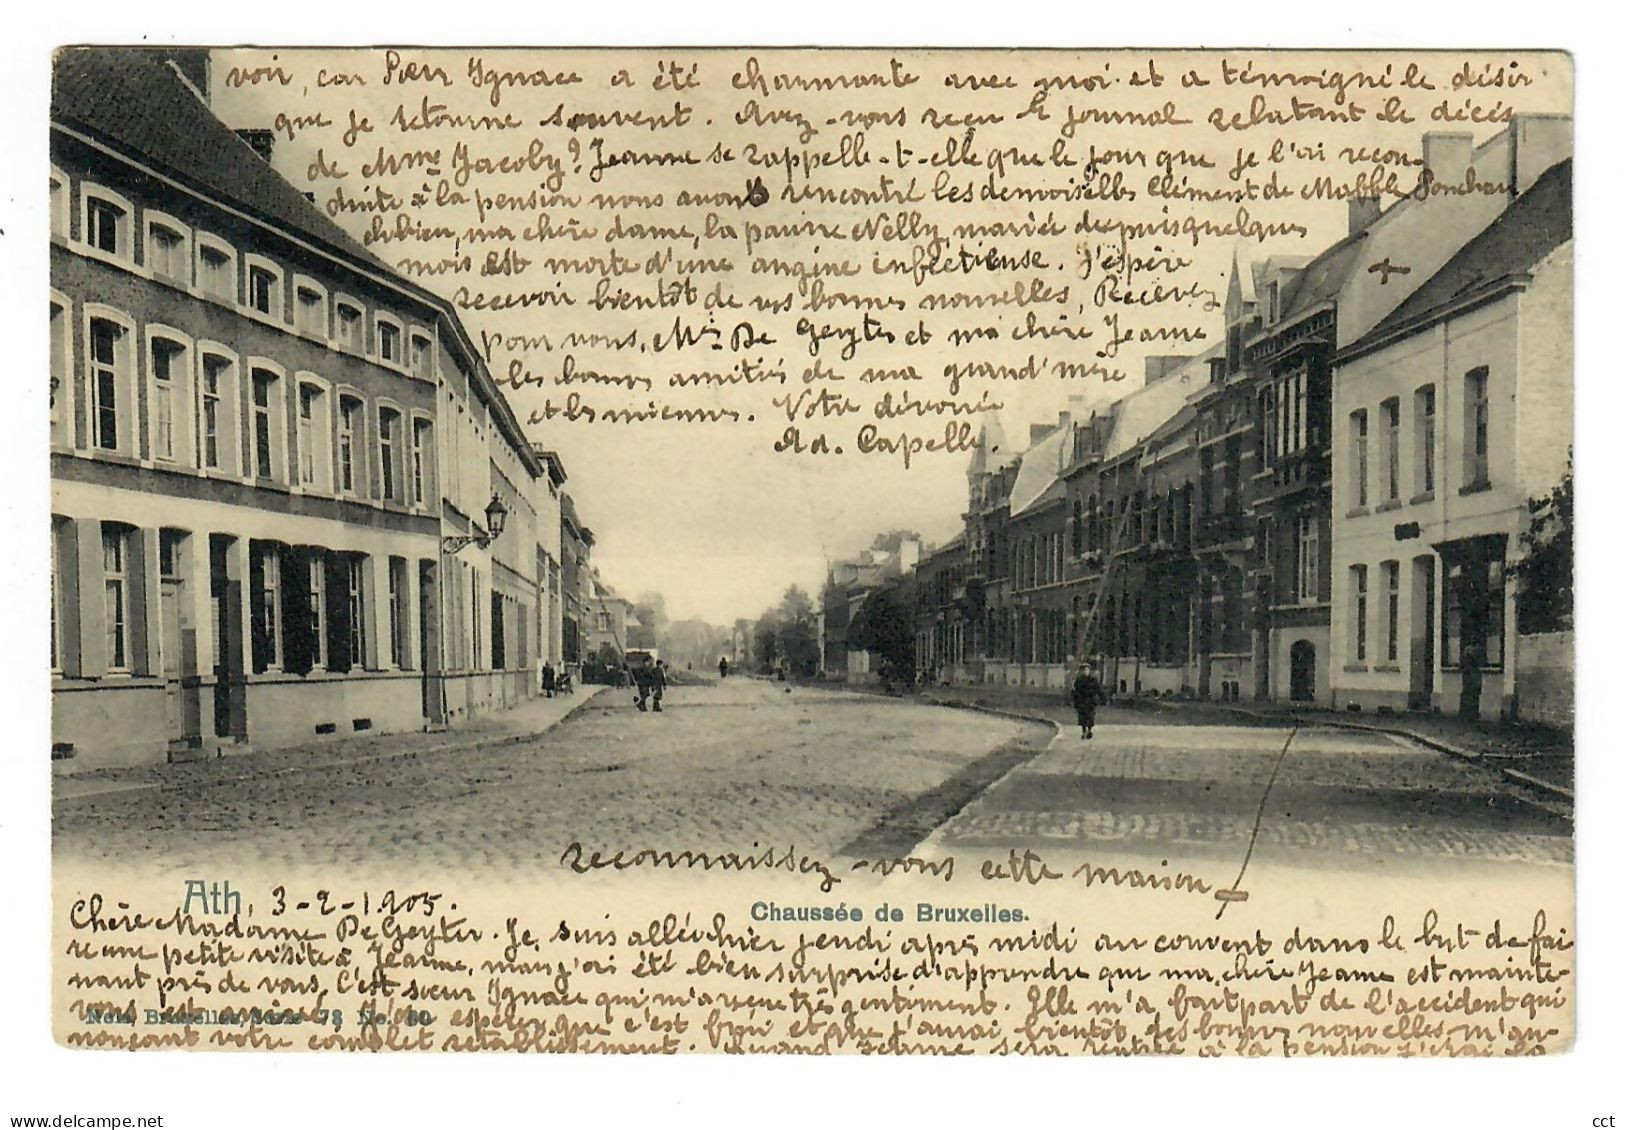 voir, car Sœur Ignace a été charmante avec moi et a témoigné le désir
que je retourne souvent. Avez-vous reçu le journal relatant le décès
de Mme Jacoby? Jeanne se rappelle-t-elle que le jour que je l'ai recon-
duite à la pension nous avons rencontré les demoiselles Clément de Maffle
eh bien, ma chère dame, la pauvre Nelly, mariée depuis quelques
mois est morte d'une angine infectieuse. J'espère
recevoir bientôt de vos bonnes nouvelles, Recevez
pour vous, Mr. De Geyter et ma chère Jeanne
les bonnes amitiés de ma grand'mère
et les miennes. Votre dévouée
Ad. Capelle.
reconnaissez-vous cette maison
Ath, 3-2-1905.
Chaussée de Bruxelles.
Chère Madame De Geyter. Je suis allée hier jeudi après midi au couvent dans le but de fai
re une petite visite à Jeanne, mais j'ai été bien surprise d'apprendre que ma chère Jeanne est mainte-
nant près de vous. C'est sœur Ignace qui m'a reçue très gentiment. Elle m'a fait part de l'accident qui
vous est arrivé, j'ose espérer que c'est fini et que j'aurai bientôt des bonnes nouvelles m'an-
nonçant votre complet rétablissement. Quand Jeanne sera rentrée à la pension j'irai la
Nels, Bruxelles, Série 73 No. 80
delcampe.net
cct